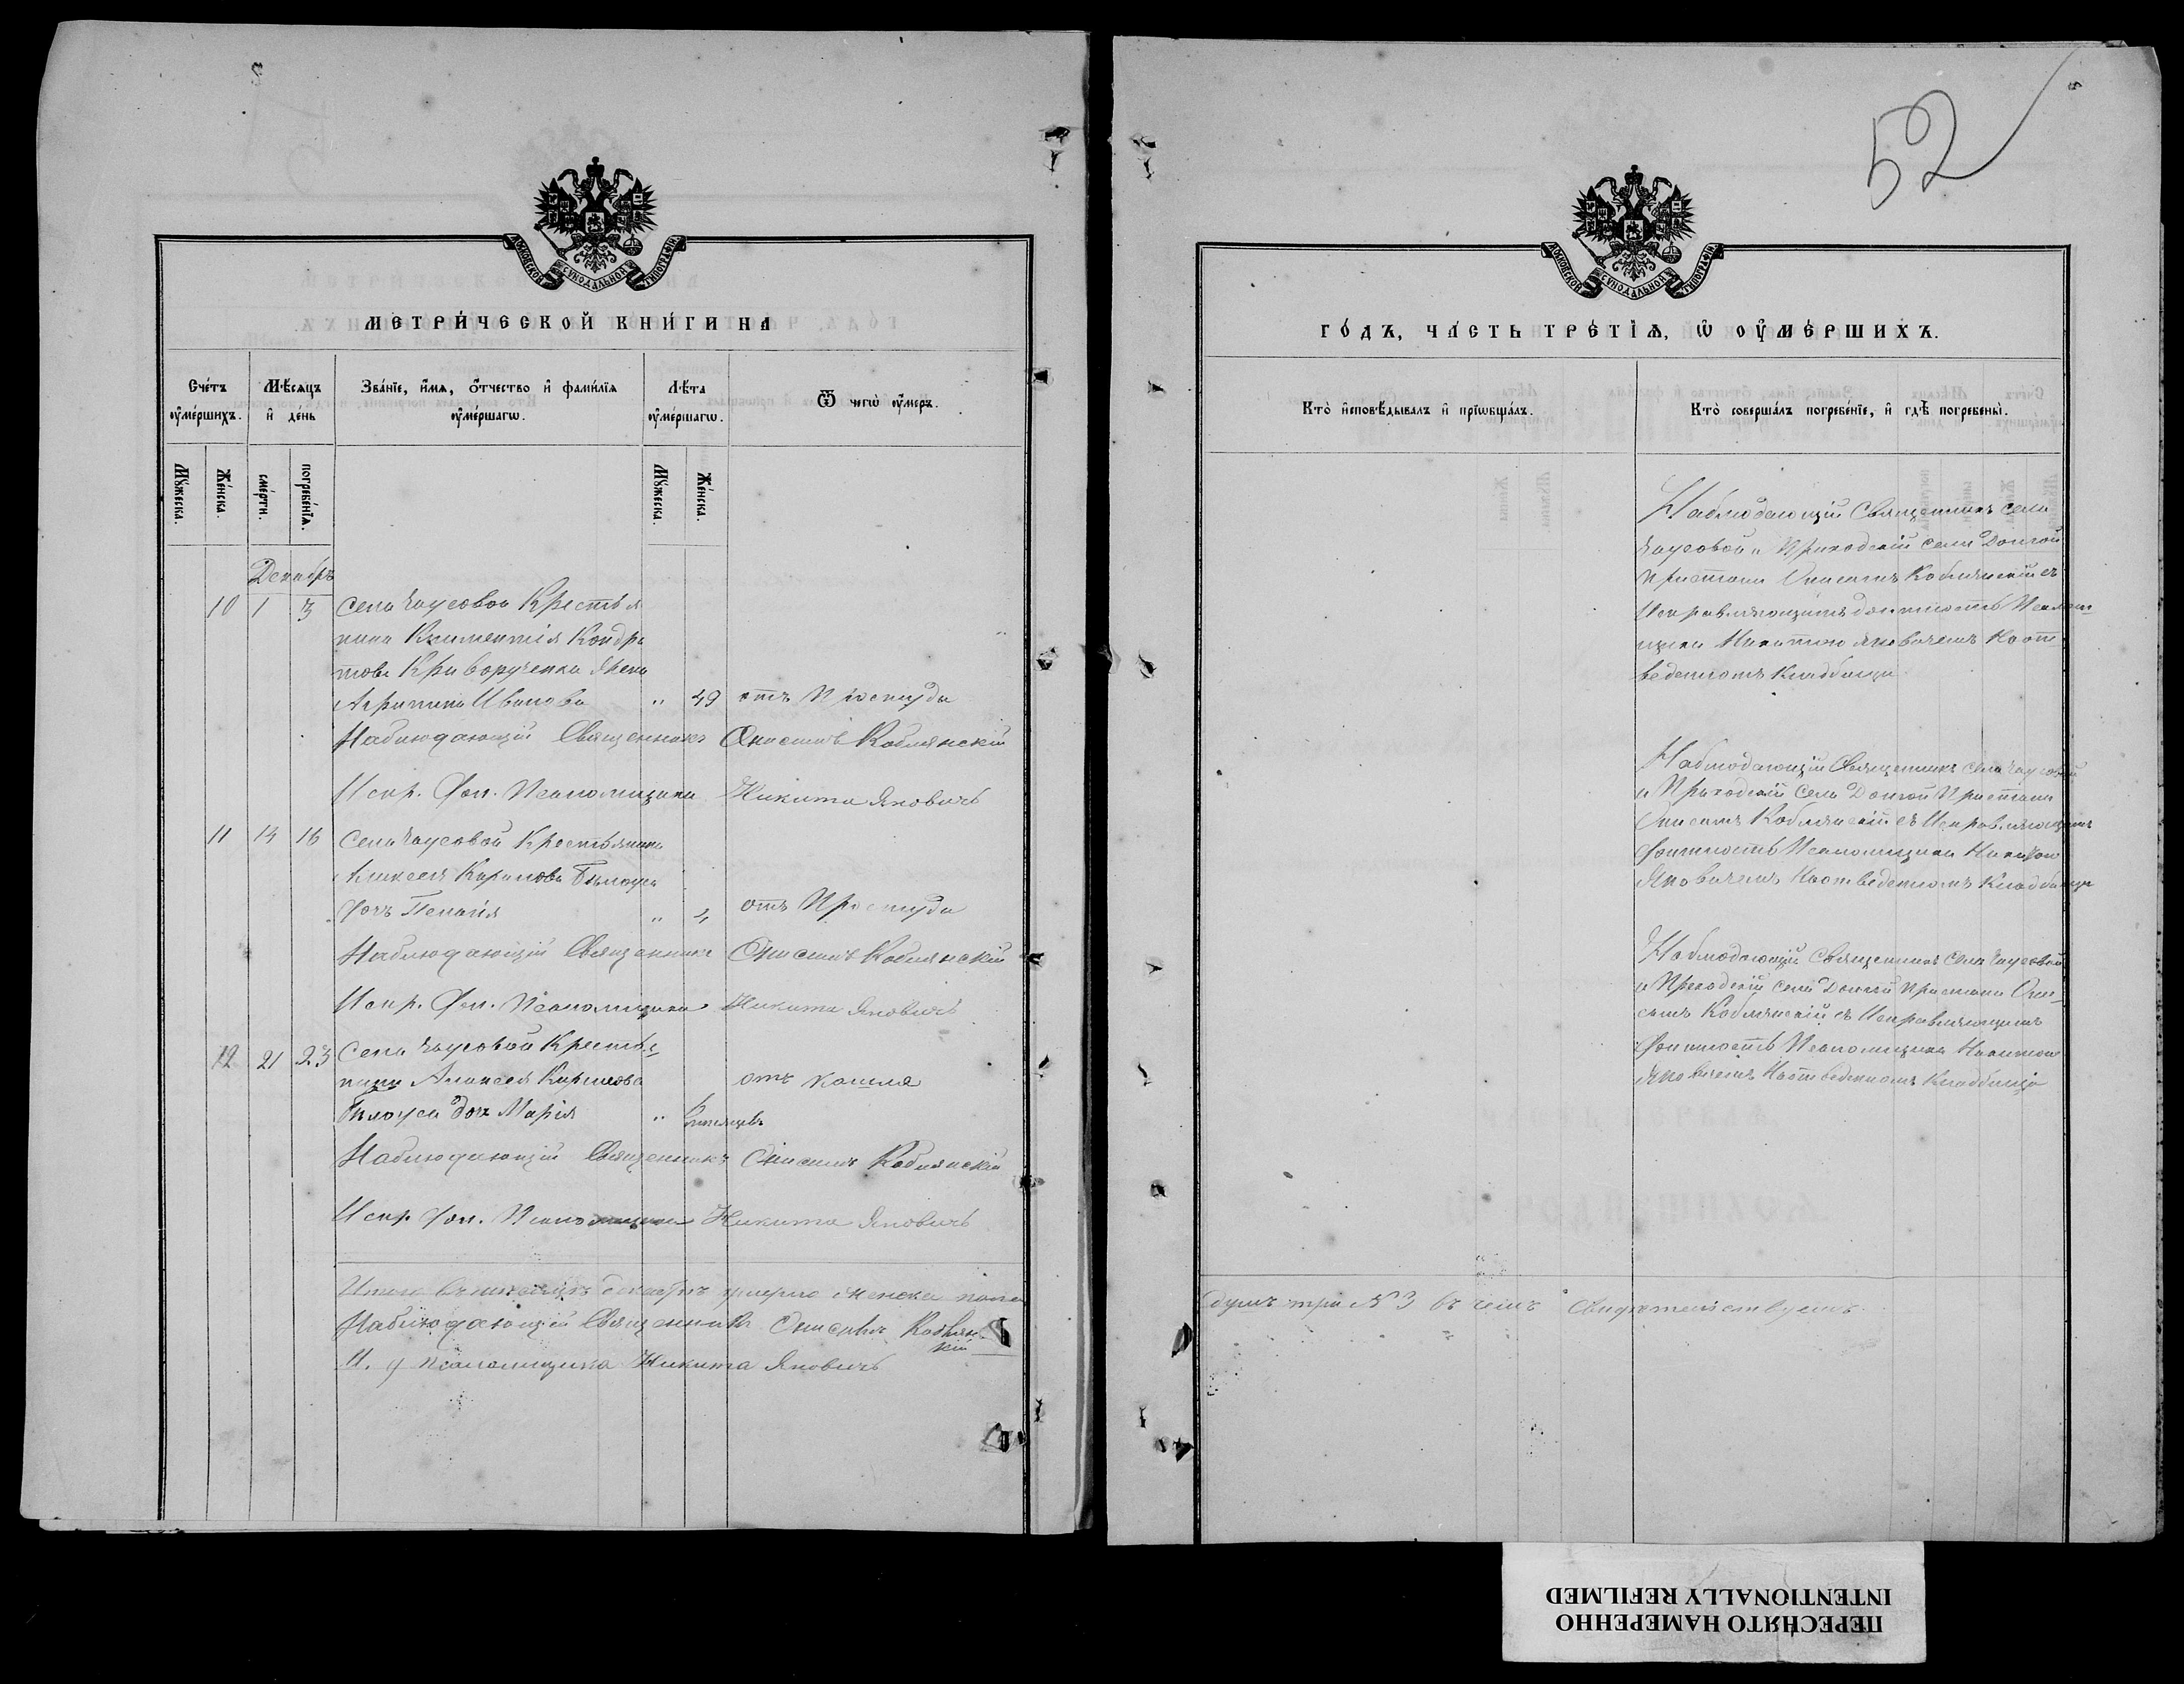 52
МОСКОВСКОЙ СѴНОДАЛЬНОЙ ТИПОГРАФІИ
МЕТРИ́ЧЕСКОЙ КНИ́ГИ НА
Сче́тъ ᲂу҆ме́ршихъ.
Мѣ́сяцъ и҆ де́нь
Зва́нїе, и҆́мѧ, ѻ҆́тчество и҆ фами́лїѧ ᲂу҆ме́ршагѡ.
Лѣ́та ᲂу҆ме́ршагѡ.
Ѿ чегѡ̀ ᲂу҆́меръ.
Мꙋ́жеска.
Же́нска.
сме́рти.
погребе́нїѧ.
Мꙋ́жеска.
Же́нска.
Декабрь
10 1 3 Села Чаусовой Крестья
нина Климентія Кондра
това Криворученка жена
Агрипина Иванова " 49 отъ Простуды
Наблюдающій Священникъ Онисимъ Коблянскій
Испр. Дол. Псаломщика Никита Яновичъ
11 14 16 Села Чаусовой Крестьянина
Алексея Карпова Билоуса
дочь Пелагія " 4 отъ Простуды
Наблюдающій Священникъ Онисимъ Коблянскій
Испр. Дол. Псаломщика Никита Яновичъ
12 21 23 Села Чаусовой Крестья
нина Алексея Карпова отъ кашля
Билоуса дочь Марія " 6 месяцевъ
Наблюдающій Священникъ Онисимъ Коблянскій
Испр. Дол. Псаломщика Никита Яновичъ
Итого въ месяце декабре умерло женска пола
Наблюдающій Священникъ Онисимъ Коблян
скій
И. д псаломщика Никита Яновичъ
МОСКОВСКОЙ СѴНОДАЛЬНОЙ ТИПОГРАФІИ
ГО́ДЪ, ЧА́СТЬ ТРЕ́ТЇѦ, Ѡ҆ ОУ҆МЕ́РШИХЪ.
Кто̀ и҆сповѣ́дывалъ и҆ прїѡбща́лъ.
Кто̀ соверша́лъ погребе́нїе, и҆ гдѣ̀ погребены̀.
Наблюдающій Священникъ села
Чаусовой и Приходскій села Долгой
Пристани Онисимъ Коблянскій съ
Исправляющимъ должность Псалом
щика Никитою Яновичемъ На от
веденномъ кладбищи
Наблюдающій Священникъ села Чаусовой
и Приходскій села Долгой Пристани
Онисимъ Коблянскій съ Исправляющимъ
должность Псаломщика Никитою
Яновичемъ На отведенномъ Кладбищи
Наблюдающій Священникъ села Чаусовой
и Приходскій села Долгой Пристани Они-
симъ Коблянскій съ Исправляющимъ
должность Псаломщика Никитою
Яновичемъ На отведенномъ Кладбищи
душъ три № 3 въ чемъ Свидетельствуемъ
ПЕРЕСНЯТО НАМЕРЕННО
INTENTIONALLY REFILMED